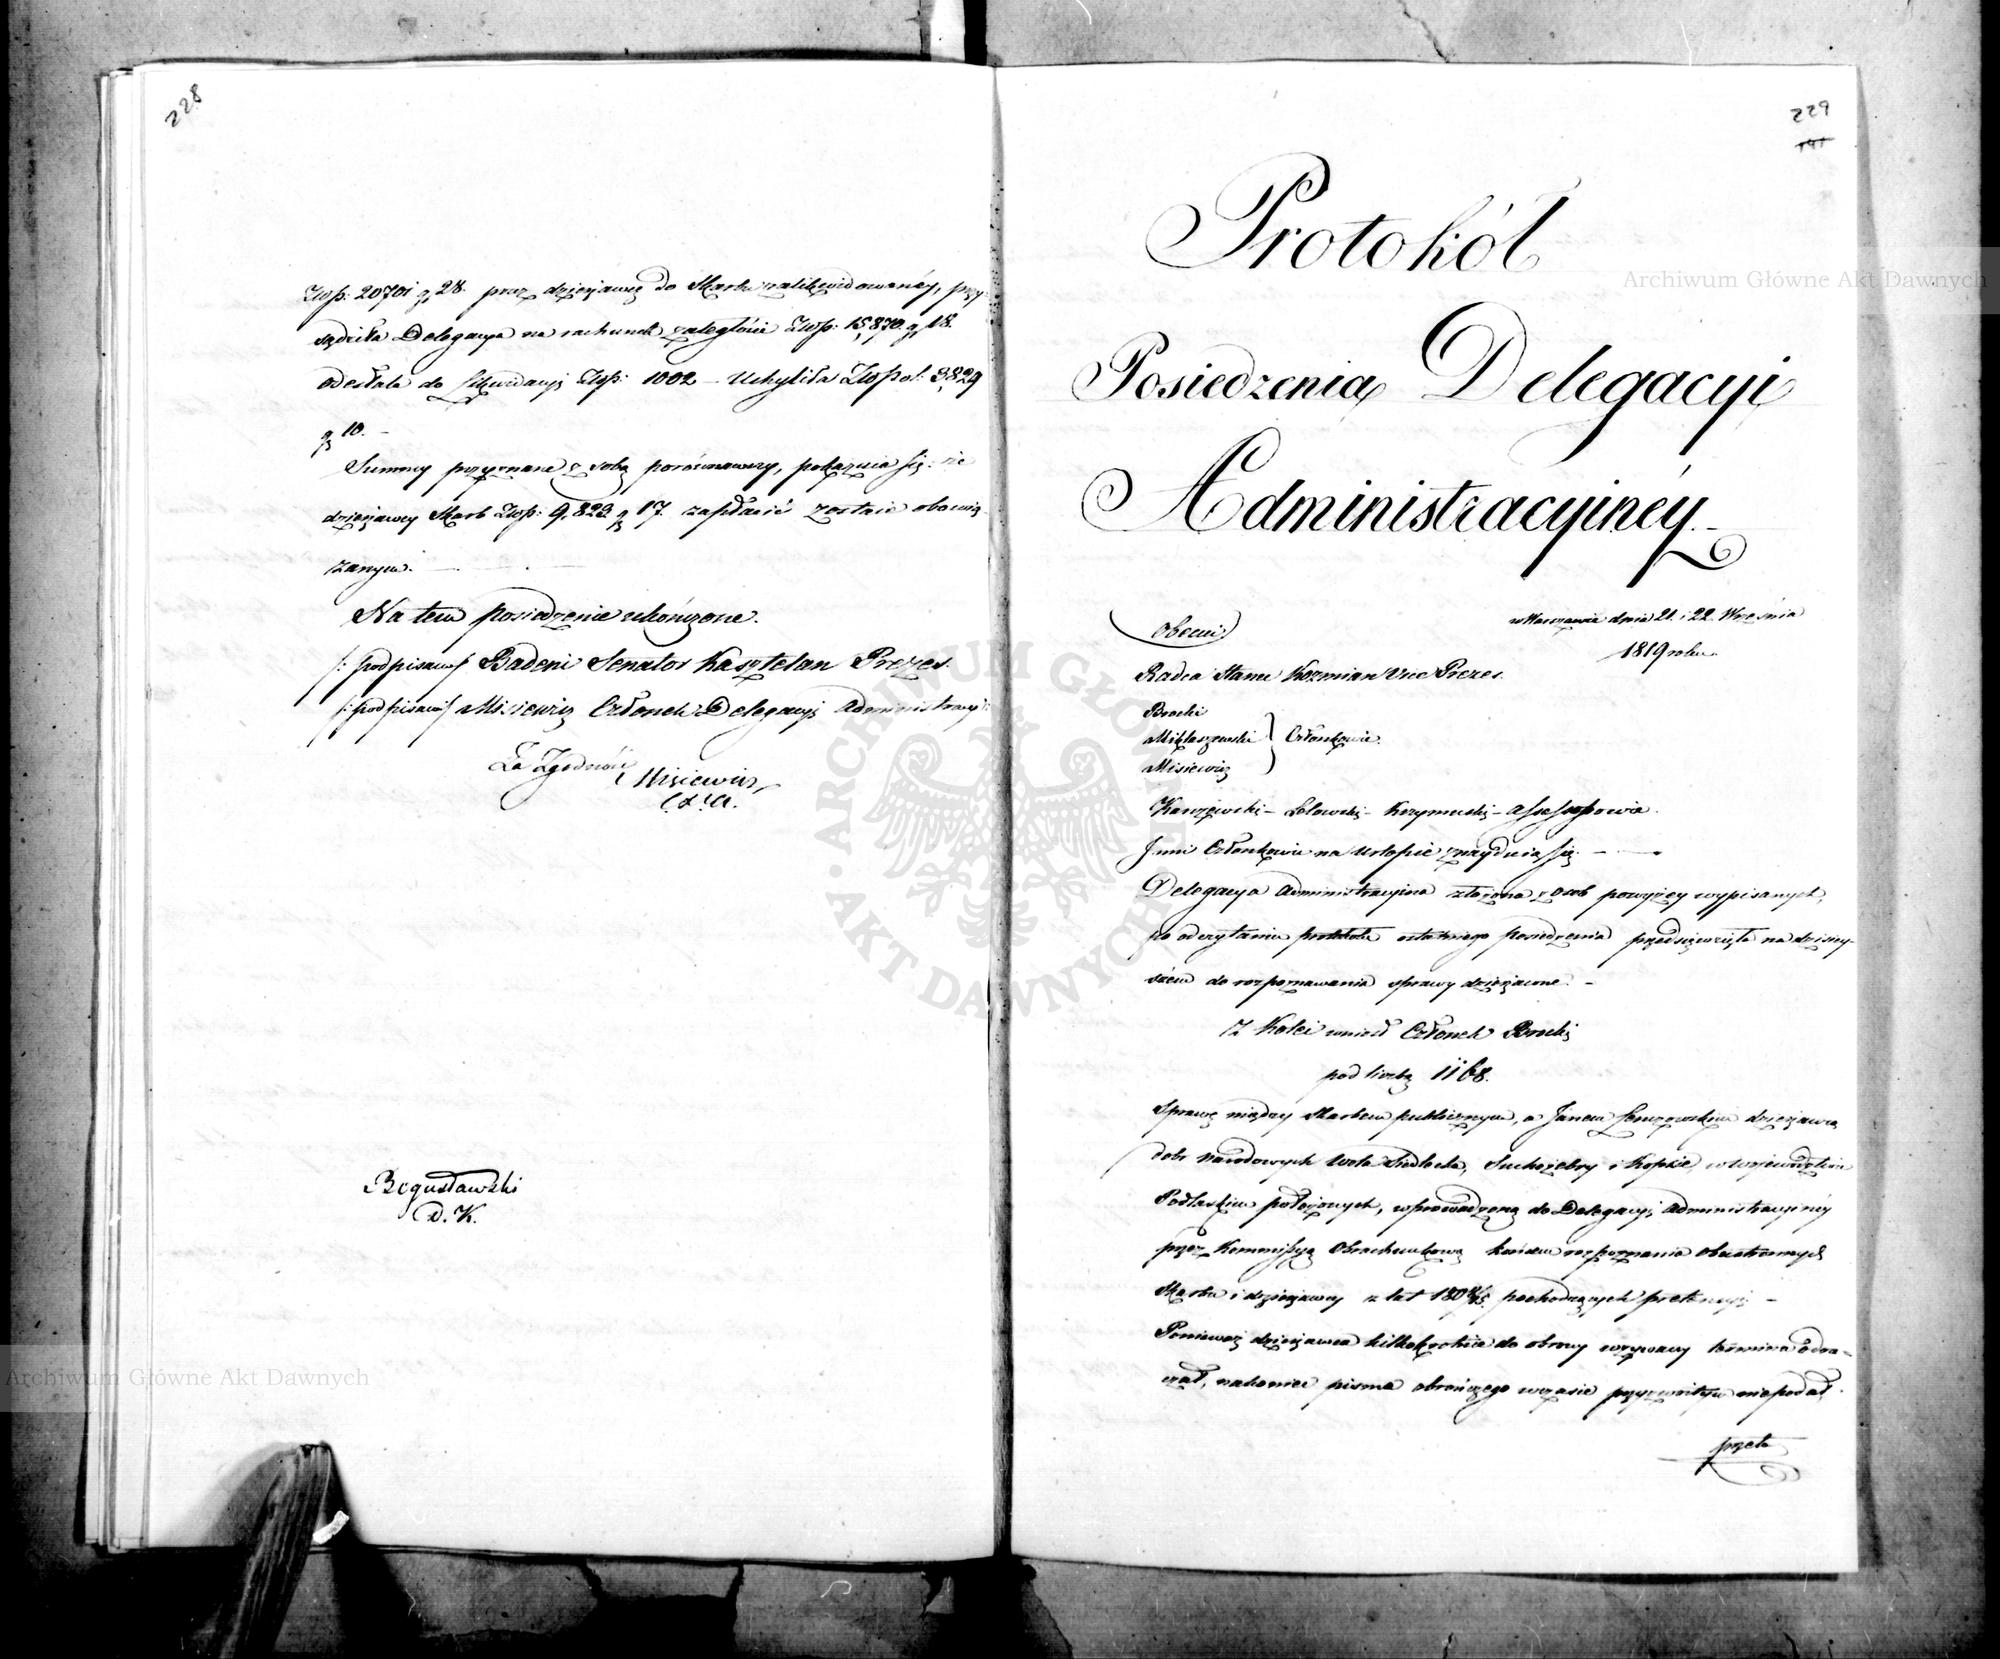 228
Złłp: 20701 g 28. przez dzierżawcę do Skarbu zalikwidowanéy, przy-
sądziła Delegacya na rachunek zaległości Złłp: 15,870. g 18.
odesłała do Likwidacyi Złłp: 1002 – Uchyliła Złł Pol: 3,829
g 10. –
Summy przyznane z sobą porównawszy, pokazuie się: że
dzierżawcy Skarb Złłp: 9,823. g 17. zapłacić zostaie obowią-
zanym.
Na tem posiedzenie ukończone.
/: podpisano / Badeni Senator Kasztelan Prezes.
/: podpisano / Misiewicz Członek Delegacyi Administracyi:
Za Zgodność
Misiewicz
Bogusławski
D. K.
229
141
Protokół
Posiedzenia Delegacyi
Administracyinéy.
w Warszawie dnia 21. i 22. Września
1819 roku.
Obecni
Radca Stanu Koźmian Vice Prezes.
Brocki
Miklaszewski
Misiewicz
Członkowie.
Karzewski – Lelowski – Krzymuski – Assessorowie.
Inni Członkowie na urlopie znayduią się. –
Delegacya Administracyina złożona z osob powyżey wypisanych,
po odczytaniu protokułu ostatniego posiedzenia przedsięwzięła na dzisiey-
szém do rozpoznawania sprawy dzierżawne. –
Z Kolei wniosł Członek Brocki
pod liczbą 1168.
Sprawę między Skarbem publicznym, a Janem Lenczewskim dzierżawcą
dobr Narodowych Wola Siedlecka, Suchożebry i Kopcie, w Woiewództwie
Podlaskim położonych, wprowadzoną do Delegacyi Administracyinéy
przez Kommissyą Obrachunkową końcem rozpoznania obustronnych
Skarbu i dzierżawcy z lat 180 8/15. pochodzących pretensyi. –
Ponieważ dzierżawca kilkokrotnie do obrony wzywany termina odra-
czał, nakoniec pisma obronczego w czasie przyzwoitym niepodał.
przeto
Archiwum Główne Akt Dawnych
Archiwum Główne Akt Dawnych
ARCHIWUM GŁÓWNE AKT DAWNYCH